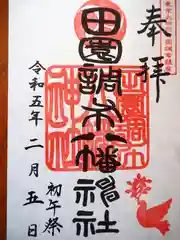 奉拝
田園調布八幡神社
初午祭
令和五年二月五日